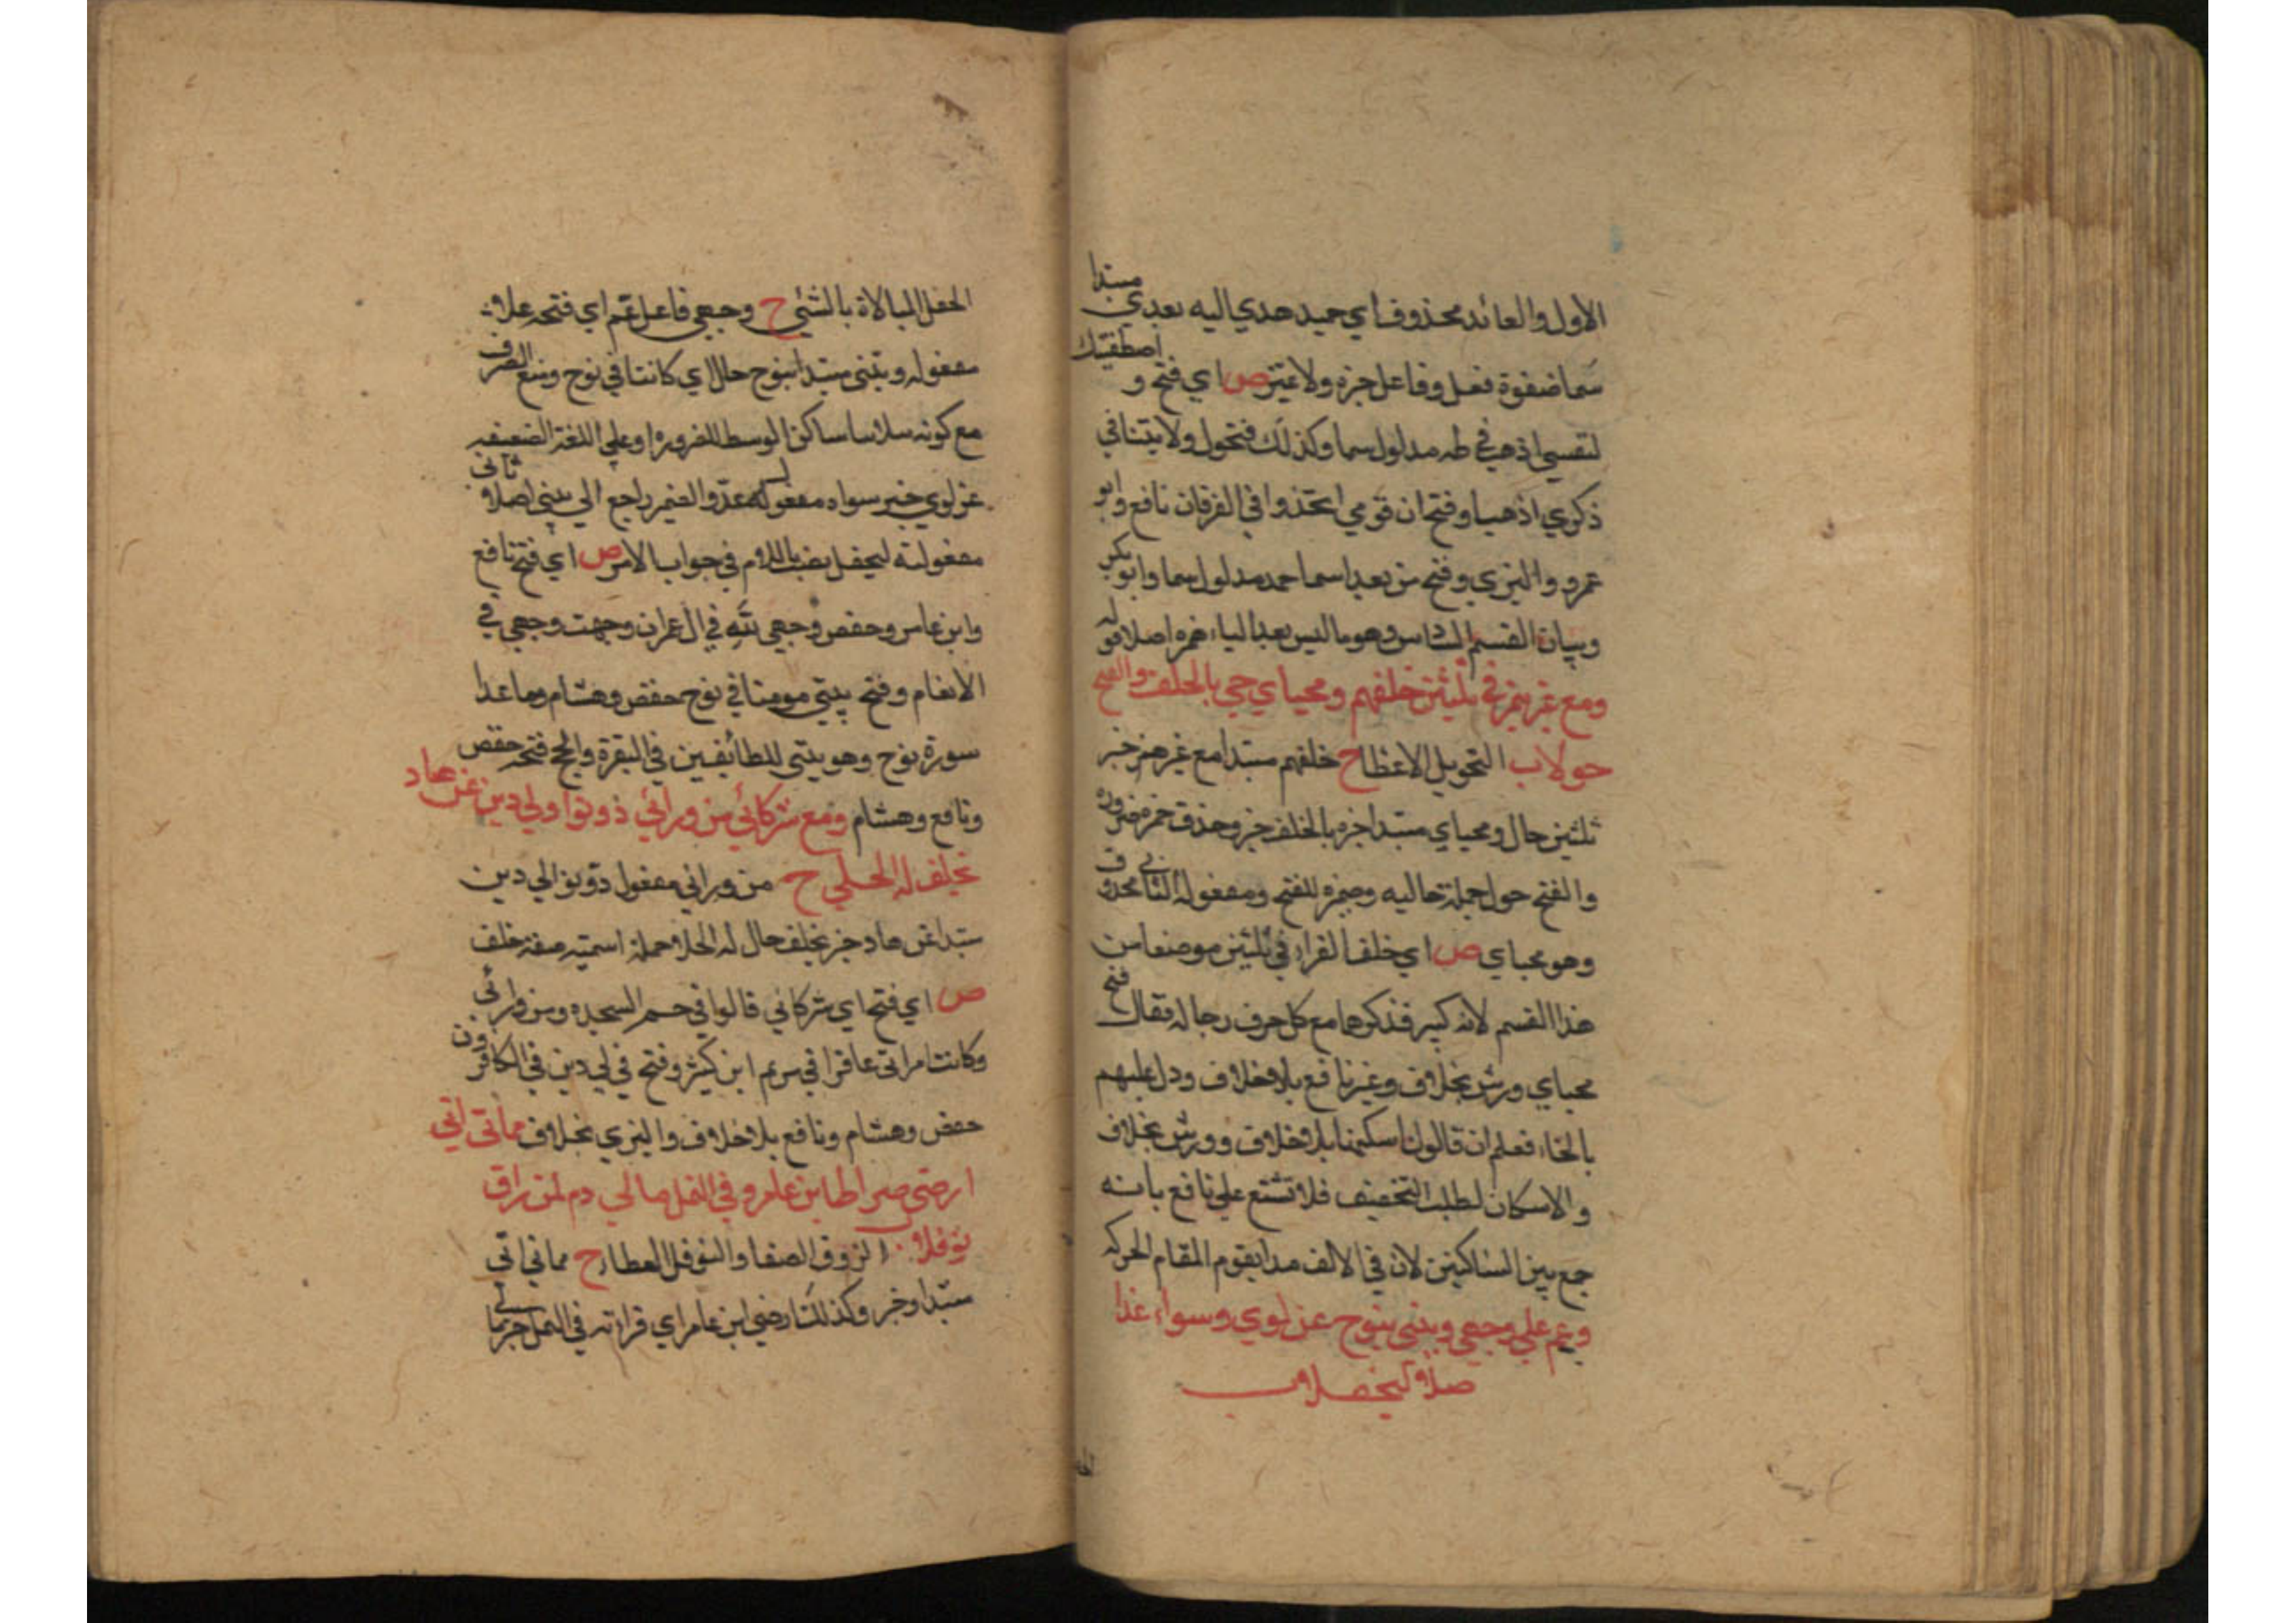 الاول والعائد محذوف اي حميد هدي اليه بعدي مبتدا
سما صفوة فعل وفاعل خبره ولا غير ص اي فتح و اصطفيتك
لنفسي اذهب في طه مدلول سما وكذلك فتحول ولا يتنافي
ذكري اذهبا وفتح ان قومي اتخذوا في الفرقان نافع وابو
عمرو والبزي وفتح من بعد اسما احمد مدلول سما وابو بكر
وبيان القسم السادس وهو ما ليس بعد الياء همزه اصلا قوله
ومع غير همز في ثلثين خلفهم ومحياي جي بالخلف والفتح
حولا ب التحويل الاعطا ح خلفهم مبتدا مع غير همز خبر
ثلثين حال ومحياي مبتدا خبره بالخلف جز وحذف خمره ضروره
والفتح حول جملة حاليه وضميره للفتح ومفعوله الثاني محذوف
وهو محياي ص اي خلف القراء في ثلثين موضعا من
هذا القسم لانه كبير فذكرها مع كل حرف رجاله فقال فتح
محياي ورش بخلاف وغير نافع بلا خلاف ودل عليهم
بالخاء فعلم ان قالون اسكنها بلا خلاف وورش بخلاف
والاسكان لطلب التخفيف فلا تشنع علي نافع بانه
جمع بين الساكنين لان في الالف مدا يقوم المقام الحركه
وعم علي وجهي وبيتي بنوح عن لوي وسواه عد ا
صلا ليحفلا ب
الحفل المبالاة بالشيئ ح وجهي فاعل عم اي فتحه علا
مفعوله وبيتي مبتدا بنوح حال اي كانتا في نوح ومنع الصرف
مع كونه ساكن الوسط للضروره او علي اللغة الضعيفه
عن لوي خبر سواه مفعول له عد والضمير راجع الي بيتي اصلا ثاني
مفعوليه ليحفل نصب باللام في جواب الامر ص اي فتح نافع
وابن عامر وحفص وجهي لله في ال عمران وجهت وجهي في
الانعام وفتح بيتي مومنا في نوح حفص وهشام وما عدا
سورة نوح وهو بيتي للطائفين في البقرة والحج فتحه حفص
ونافع وهشام ومع شركائي من ورائي دونوا ولي دين عن هاد
بخلف له الحلي ح من ورائي مفعول دونوا لي دين
مبتدا عن هاد خبر بخلف حال له الحلا جملة اسمية صفة خلف
ص اي فتح اي شركائي قالوا في حم السجده ومن ورائي
وكانت امراتي عاقرا في مريم ابن كثير وفتح في لي دين في الكافرون
حفص وهشام ونافع بلا خلاف والبزي بخلاف مماتي اتي
ارضي صراطي ابن عامر وفي النمل مالي دم لمن راق
نوفلا الروق الصفا والنوفل العطا ح مماتي اتي
مبتدا وخبر وكذلك ارضي ابن عامر اي قراءته في النمل خبر مالي